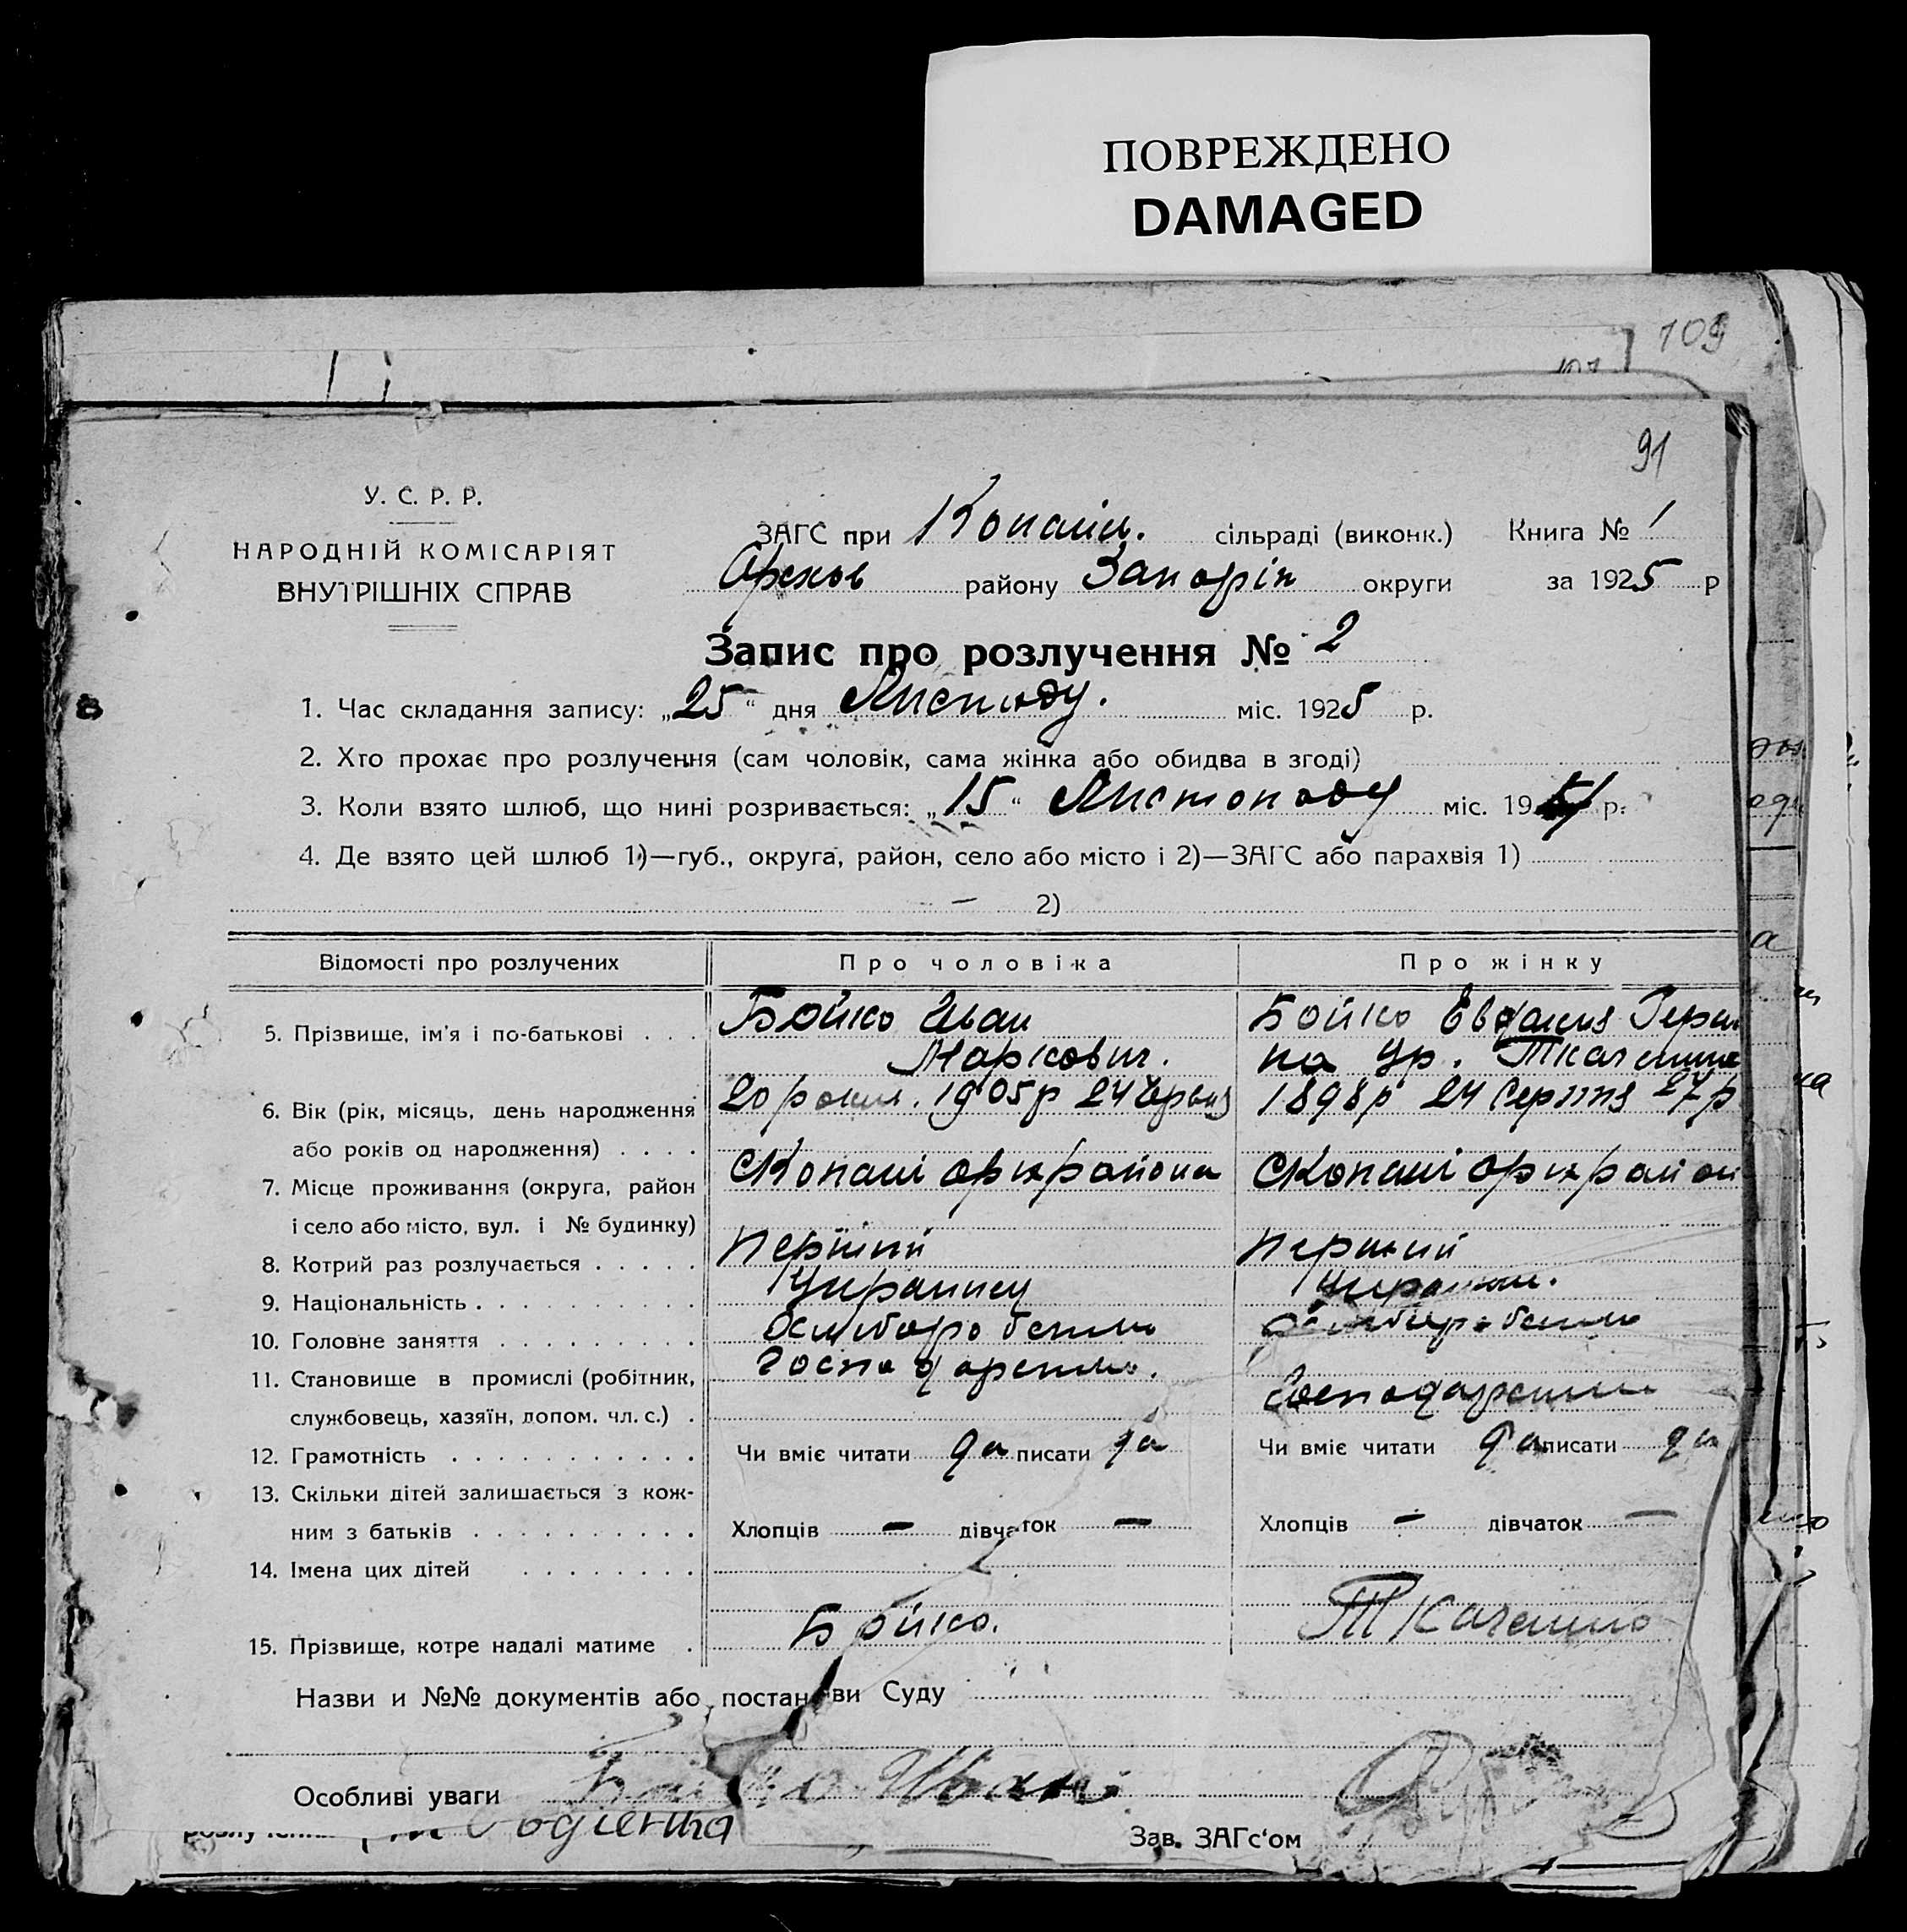 ПОВРЕЖДЕНО
DAMAGED
109
107
91
У. С. Р. Р.
НАРОДНІЙ КОМІСАРІЯТ
ВНУТРІШНІХ СПРАВ
ЗАГС при Копані. сільраді (виконк.) Книга № 1
Оріхов району Запоріж округи за 1925 р
Запис про розлучення № 2
1. Час складання запису: „25“ дня Листпаду. міс. 1925 р.
2. Хто прохає про розлучення (сам чоловік, сама жінка або обидва в згоді)
3. Коли взято шлюб, що нині розривається: „15“ Листопаду міс. 19 р.
4. Де взято цей шлюб 1)—губ., округа, район, село або місто і 2)—ЗАГС або парахвія 1)
— 2)
Відомості про розлучених Про чоловіка Про жінку
5. Прізвище, ім'я і по-батькові . . . Бойко Иван Бойко Евдокия
Маркович. на ур. Ткаченко
6. Вік (рік, місяць, день народження 20 роки. 1905р 24 Червня 1898р 24 Серпня 27р
або років од народження) . . . .
7. Місце проживання (округа, район С Копані Оріхрайона С Копані Оріхрайон
і село або місто, вул. і № будинку)
8. Котрий раз розлучається . . . . . Перший Перший
9. Національність . . . . . . . . . . Українец Украін.
10. Головне заняття . . . . . . . . . Хліборобство Хліборобство
11. Становище в промислі (робітник, Господарство. Господарство
службовець, хазяїн, допом. чл. с.) .
12. Грамотність . . . . . . . . . . . Чи вміє читати да писати да Чи вміє читати да писати да
13. Скільки дітей залишається з кож-
ним з батьків . . . . . . . . . . Хлопців — дівчаток — Хлопців — дівчаток —
14. Імена цих дітей . . . . . . . .
15. Прізвище, котре надалі матиме . Бойко. Ткаченко
Назви и №№ документів або постанови Суду
Особливі уваги Бойко Иван
Зав. ЗАГс‘ом